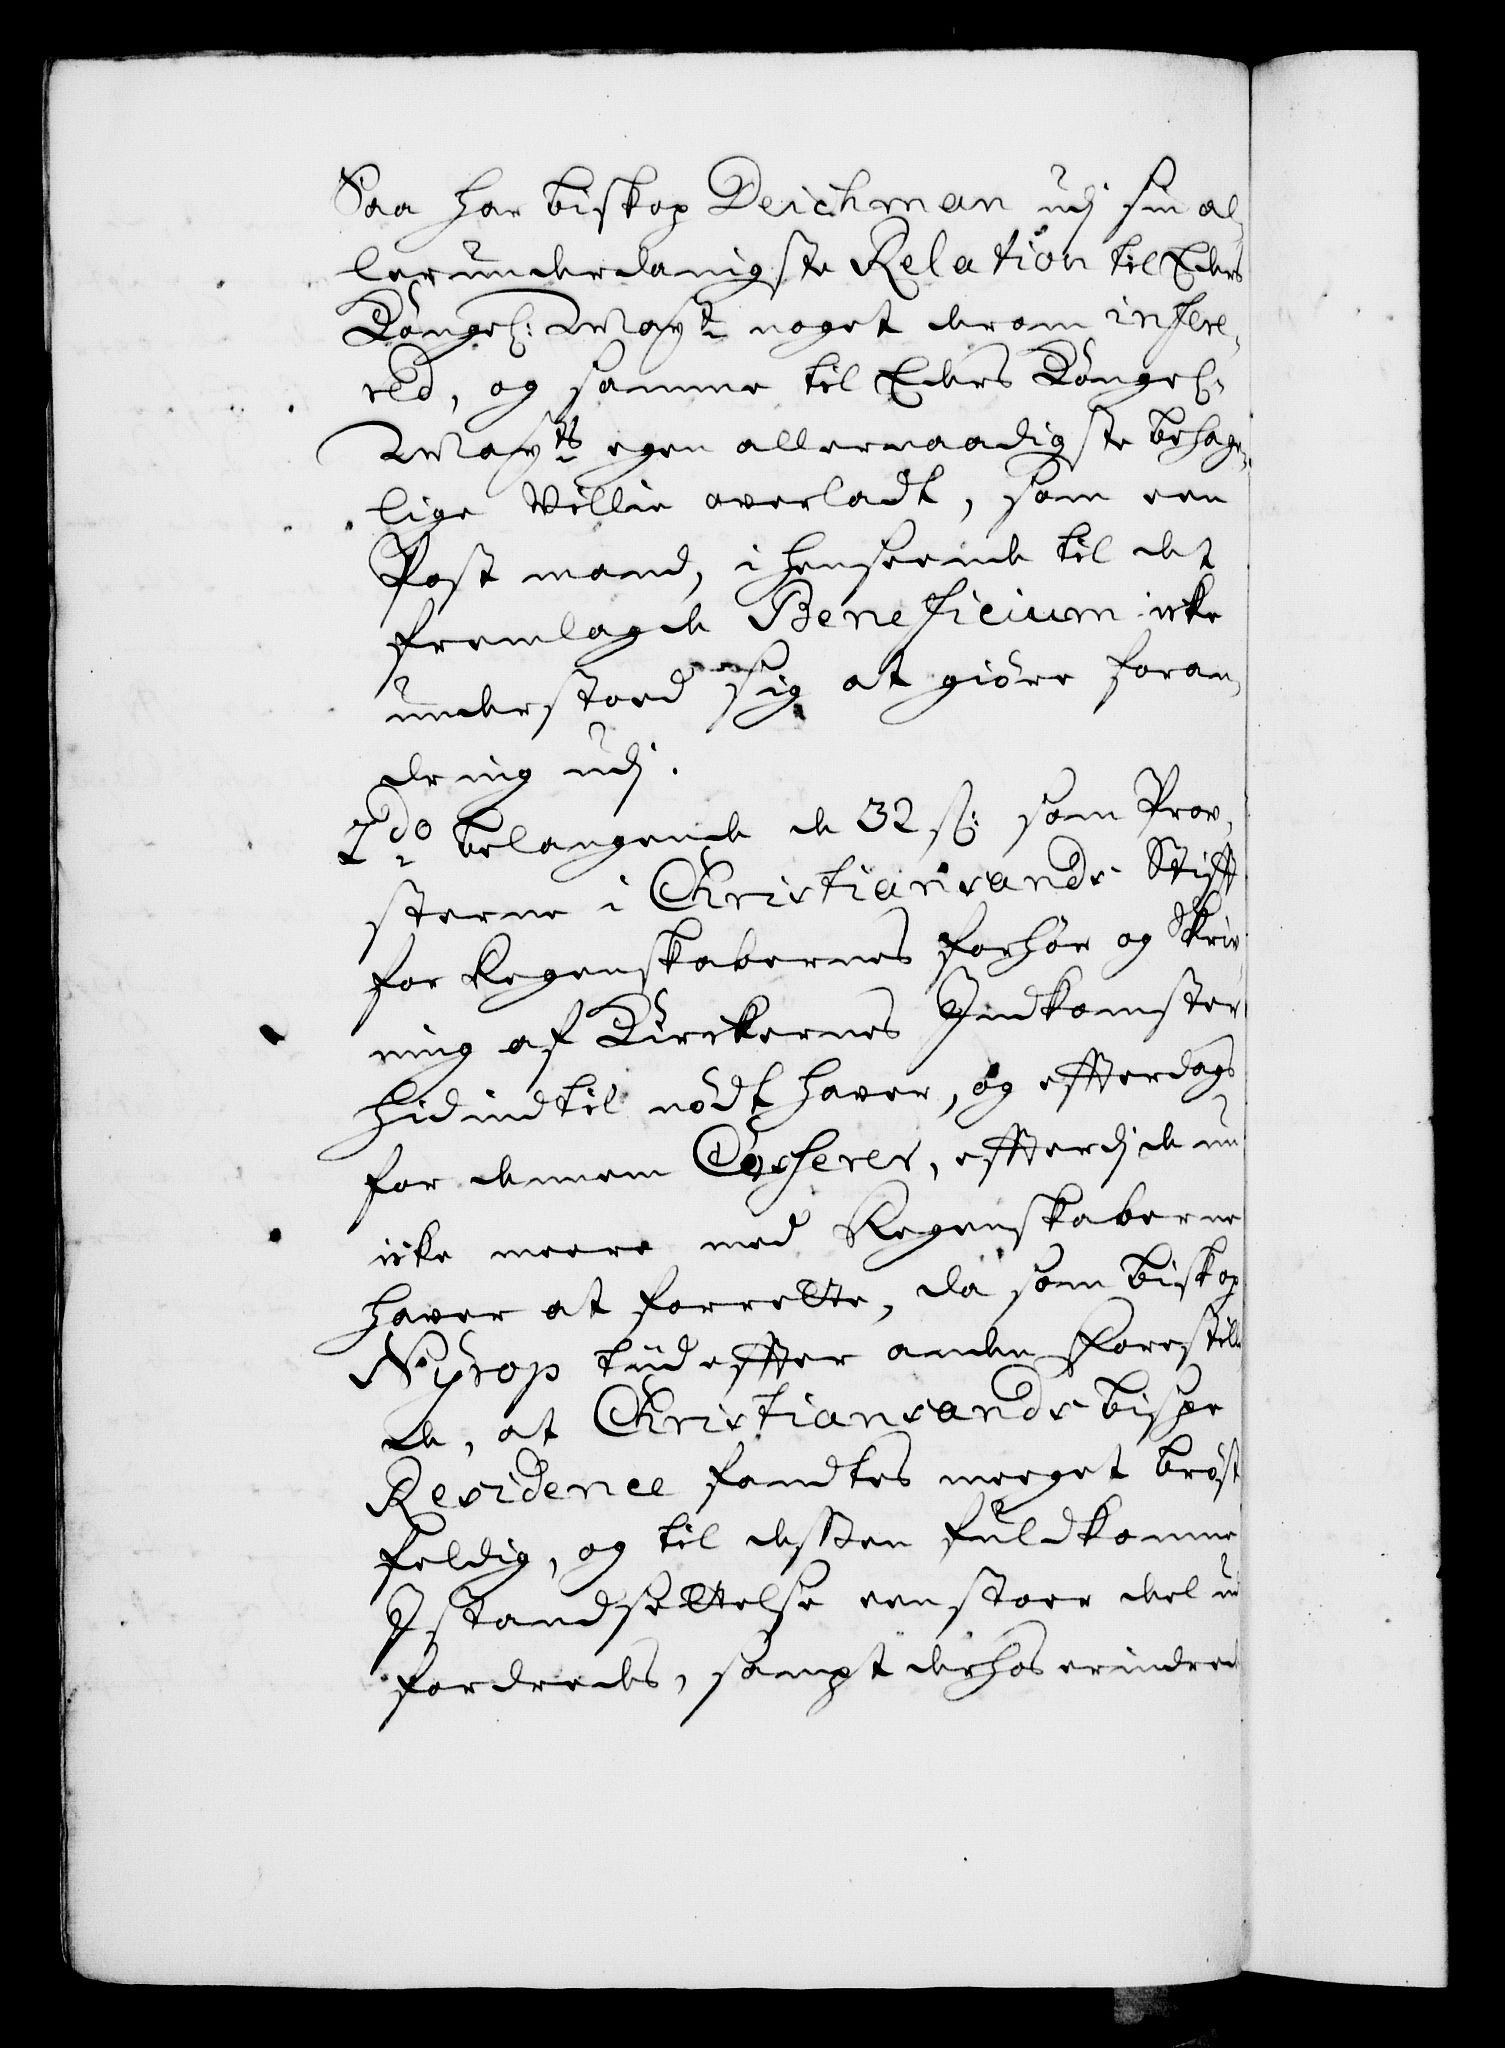 Saa har biskop Deichman udj sin al,
lerunderdanigste Relation til Eders
Kongel: Mayt noget derom infere,
red, og samme til Eders Kongel:
Mayts egen allernaadigste behage,
lige Villie overladt, som een
Post mand, i henseende til det
fremlagde Beneficium icke
understoed sig at giöre foran,
dring udj.
2do belangende de 32 s: som Prov,
sterne i Christiansands Stifft
for Regenskabernes forhör og Skriv,
ning af Kirckernes Indkomster
hidindtil nödt haver, og efferdags
for dennem Cesserer, efferdj de nu
icke meere med Regenskaberne
haver at forrette, da som biskop
Nyrop tiid effter anden Forestill
de, at Christiansands bispe
Residence fandtes meeget bröst
feldig, og til dessen fuldkomne
Istandsettelse een stoer deel ud
fordredes, sampt derhos erindred